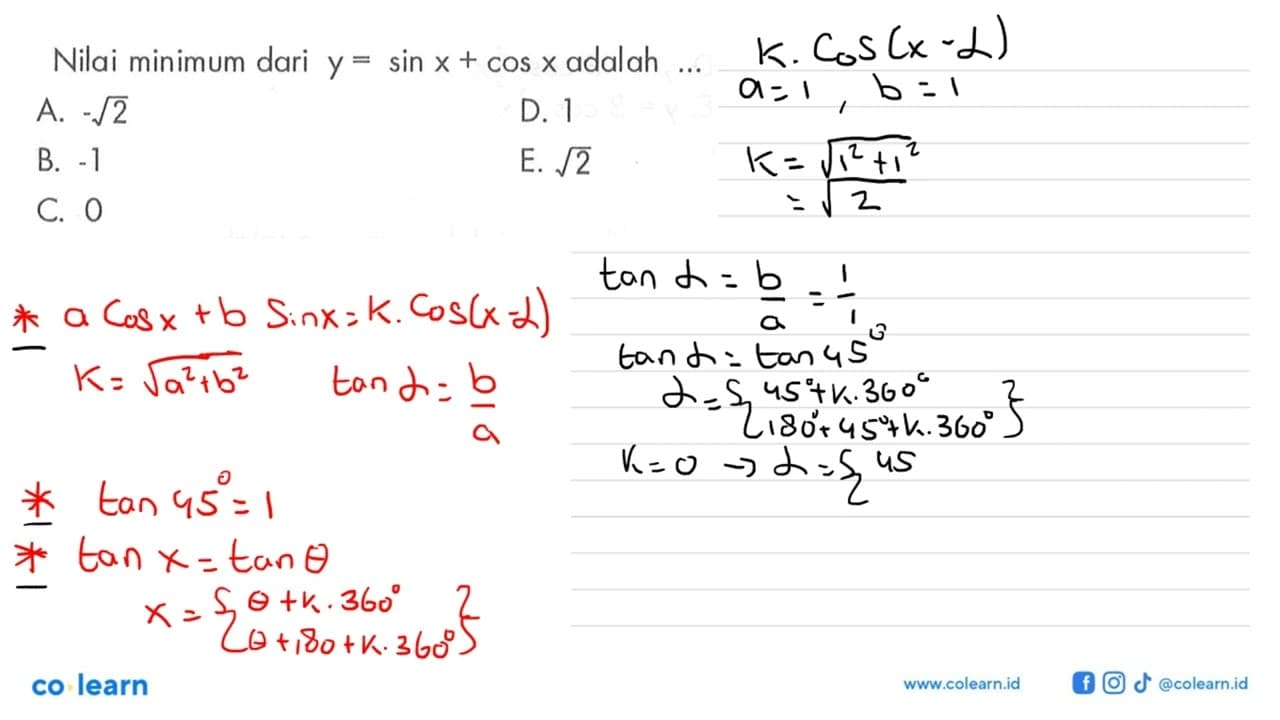 Nilai minimum dari y = sin x + cos x adalah ...
A. -√2
B. -1
C. 0
D. 1
E. √2
K. Cos(x-α)
a=1, b=1
K = √1²+1²
= √2
tan α = b/a = 1/1
tan α = tan 45°
α = { 45°+k.360°
180°+45°+k.360° }
k=0 → α = { 45
* a Cos x + b Sin x = K. Cos(x-α)
K = √a²+b² tan α = b/a
* tan 45° = 1
* tan x = tan θ
x = { θ + k.360°
θ+180+k.360° }
co learn
www.colearn.id
@colearn.id